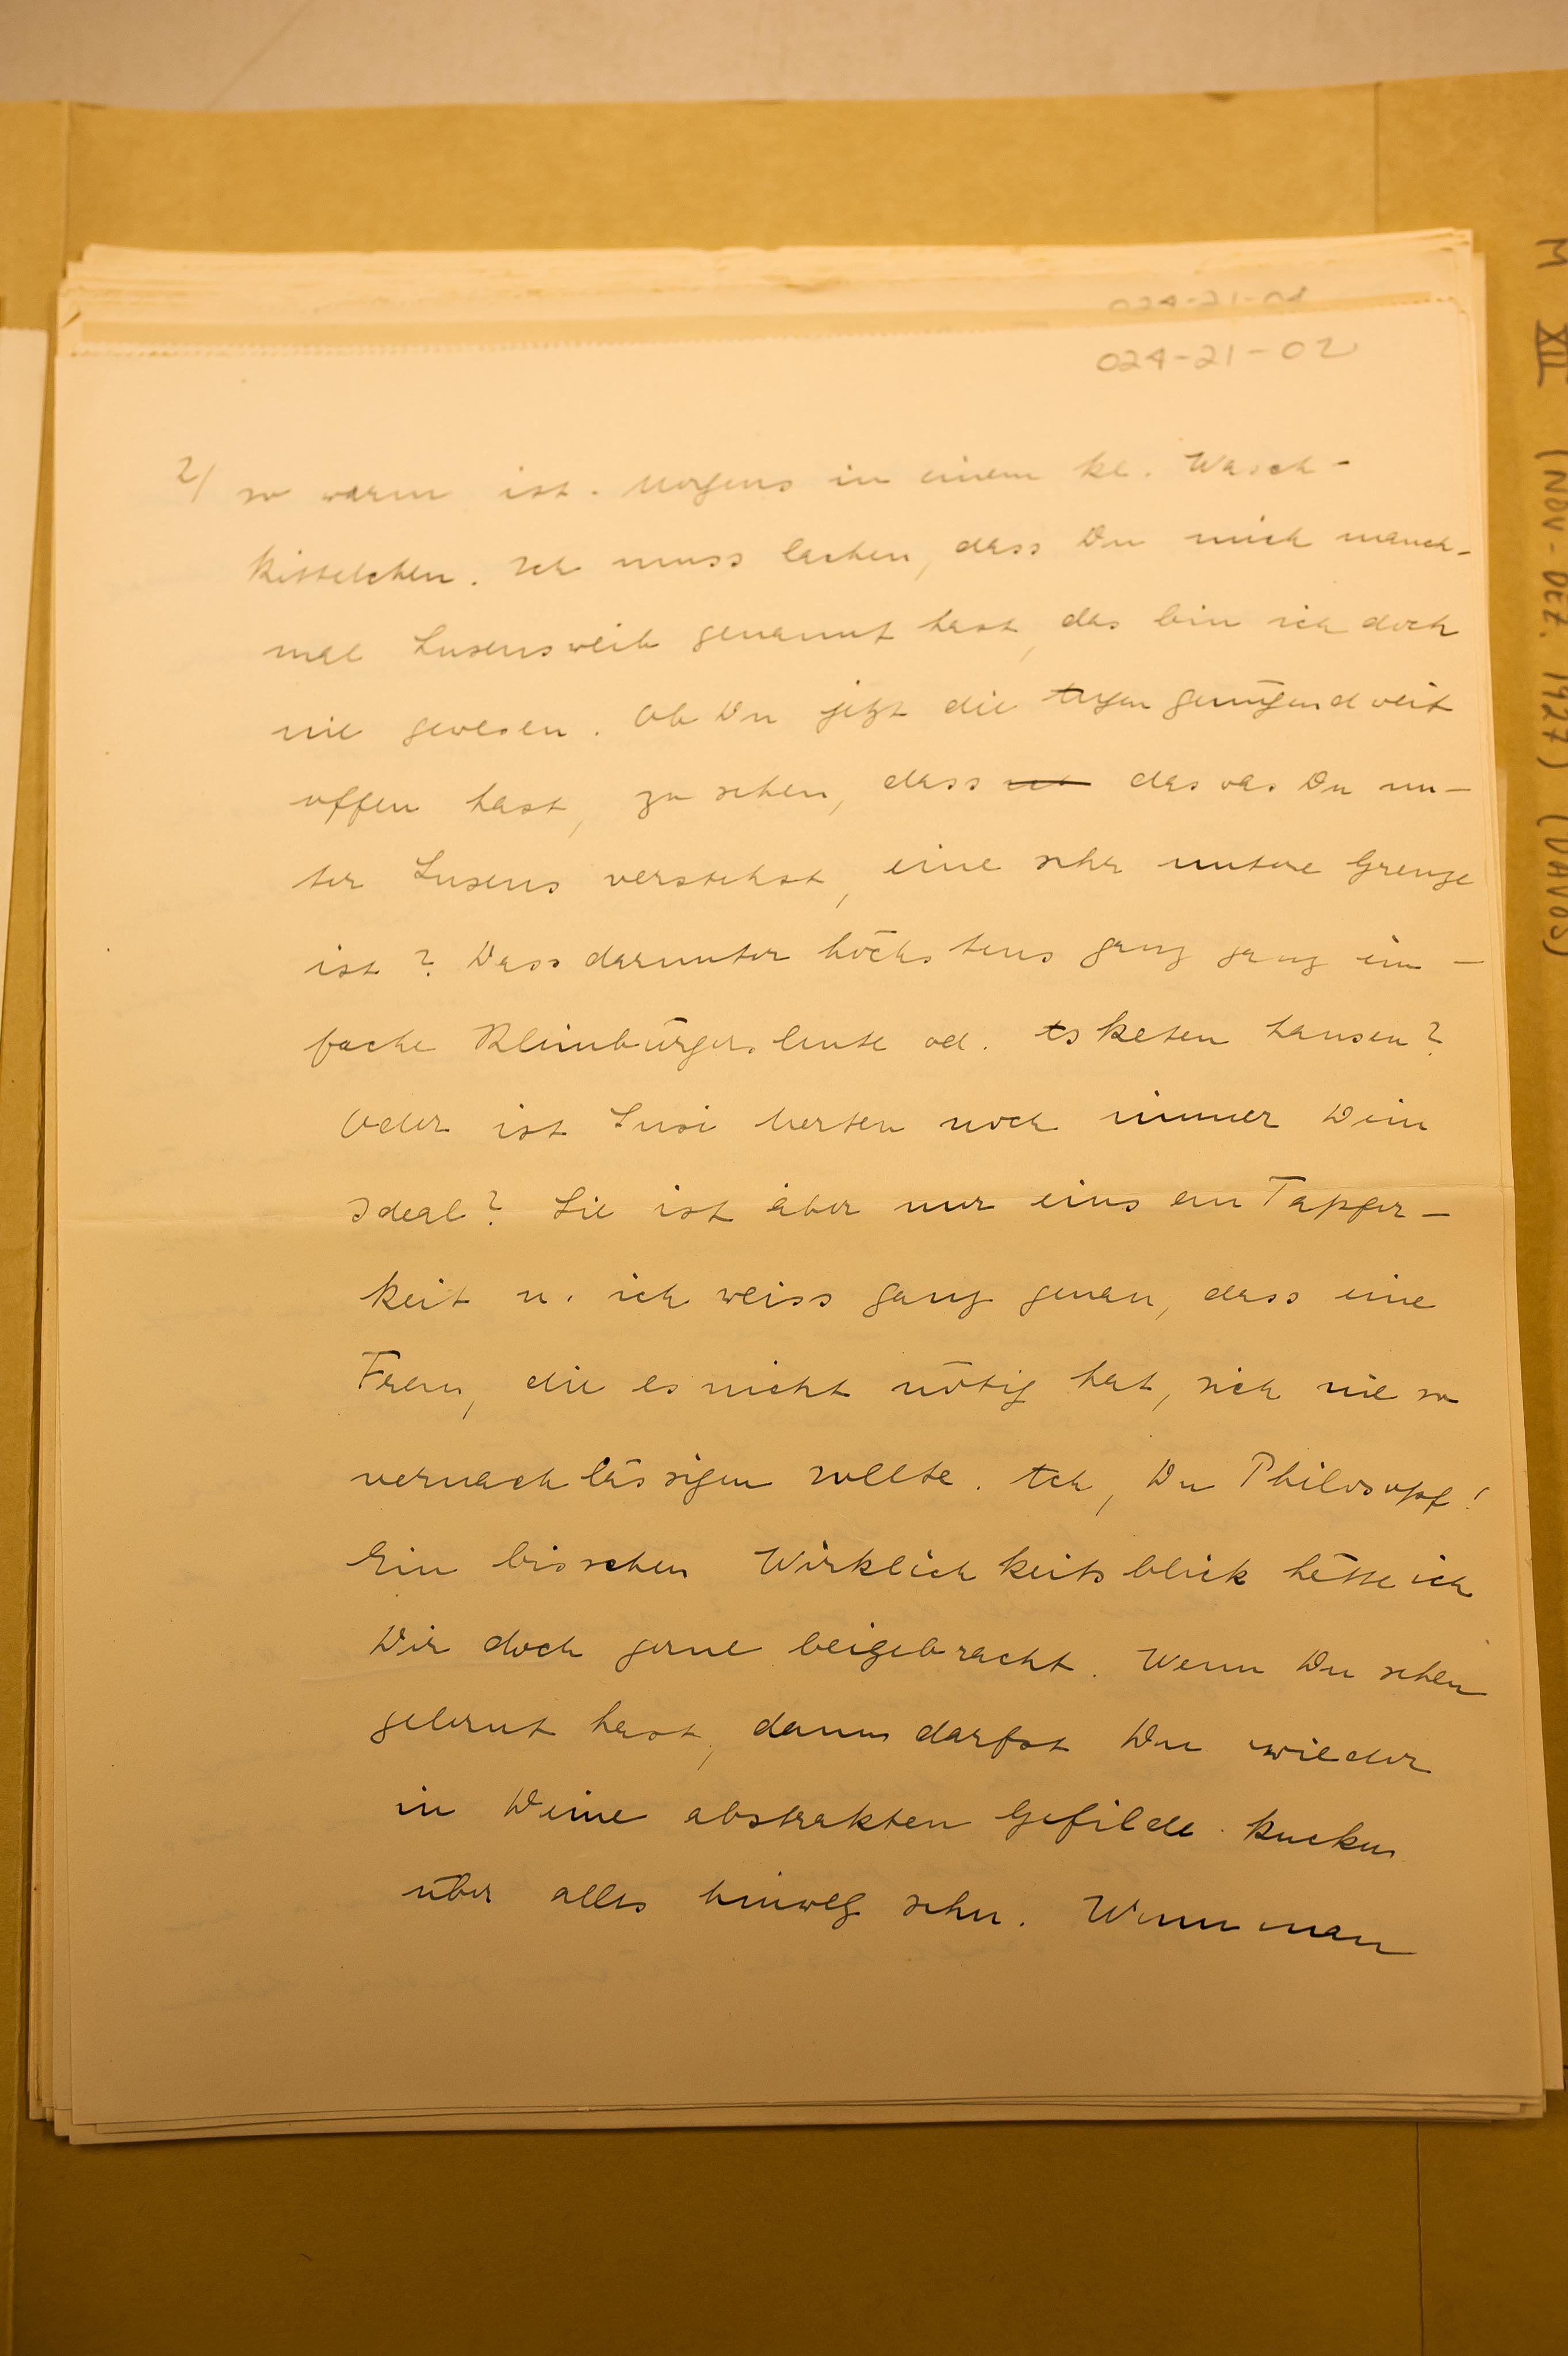 024-21-04
024-21-02
2/ so warm ist. Morgens in einem kl. Wasch-
kittelchen. Ich muss lachen, dass Du mich manch-
mal Luxusweib genannt hast, das bin ich doch
nie gewesen. Ob Du jetzt die Augen genügend weit
offen hast, zu sehen, dass das was Du un-
ter Luxus verstehst, eine sehr untere Grenze
ist? Dass darunter höchstens ganz ganz ein-
fache Kleinbürgersleute od. Asketen hausen?
Oder ist Susi noch immer Dein
Ideal? Sie ist aber nur eins an Tapfer-
keit u. ich weiss ganz genau, dass eine
Frau, die es nicht nötig hat, sich nie so
vernachlässigen sollte. Ach, Du Philosopf!
Ein bisschen Wirklichkeitsblick hätte ich
Dir doch gerne beigebracht. Wenn Du sehen
gelernt hast, dann darfst Du wieder
in Deine abstrakten Gefilde kucken
über alles hinweg sehn. Wenn man
M XII (NOV-DEZ. 1927) (DAVOS)